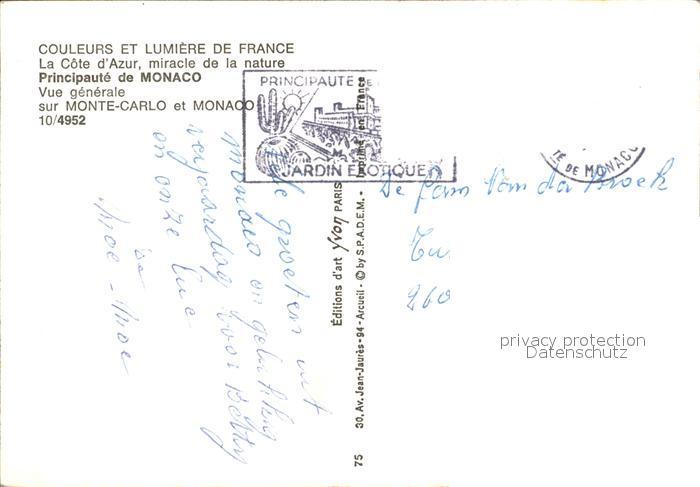 COULEURS ET LUMIÈRE DE FRANCE
La Côte d'Azur, miracle de la nature
Principauté de MONACO
Vue générale
sur MONTE-CARLO et MONACO
10/4952
PRINCIPAUTE DE
JARDIN EXOTIQUE
TE DE MONACO
groeten uit
Monaco en gelukkig
verjaardag voor Betty
en onze Luc
Moe - Moe
Editions d'art Yvon PARIS
Imprimé en France
30, Av. Jean-Jaurès - 94 - Arcueil - © by S.P.A.D.E.M. -
75
De fam Van den Broeck
privacy protection
Datenschutz
260